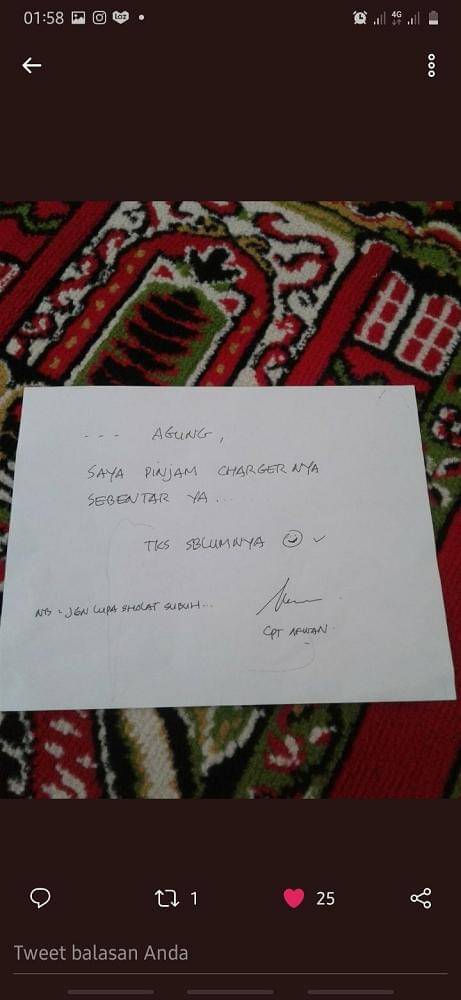 01:58
4G
--- AGUNG,
SAYA PINJAM CHARGER NYA
SEBENTAR YA ...
TKS SBLUMNYA
NB : JGN LUPA SHOLAT SUBUH...
CPT AFWAN.
1
25
Tweet balasan Anda